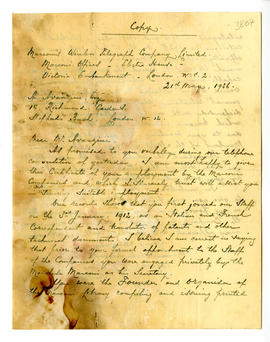 Copy
3807
Marconi's Wireless Telegraph Company Limited.
Marconi Offices - Electra House -
Victoria Embankment - London W.C.2
21st May, 1936.
18 Richmond Gardens,
Shepherds Bush, London W.12.
Dear Mr
As promised to you verbally during our telephone
conversation of yesterday I am most happy to give
this Certificate of your employment by the Marconi
Companies and which I sincerely trust will assist you
suitable employment.
Our records show that you first joined our Staff
on the 3rd January 1912, as an Italian and French
Correspondent and translator of patents and other
technical documents; I believe I am correct in saying
that prior to your formal appointment to the Staff
of the Companies you were engaged privately by the
Marconi as his Secretary.
You were the Founder and organiser of
the Marconi library compiling and printed